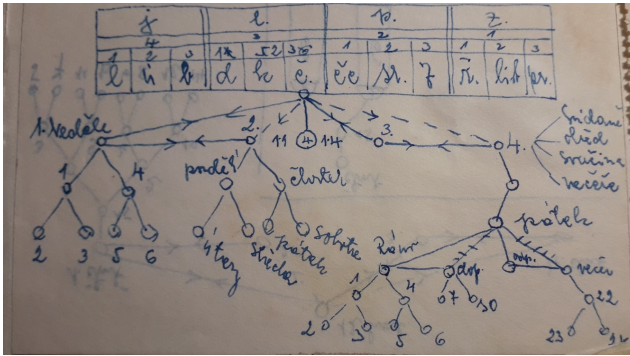 j l. p. z.
4 3 2 1
1 2 3 1 2 3 1 2 3 1 2 3
l ú b d k č. če sr. z ř. list pr.
1. neděle 2. 11 4 14 3. 4.
snídaně
oběd
svačina
večeře
1 4 pondělí čtvrtek
2 3 5 6 úterý středa pátek sobota
pátek
ráno dop. odp. večer
1 4 7 10 22
2 3 5 6 23